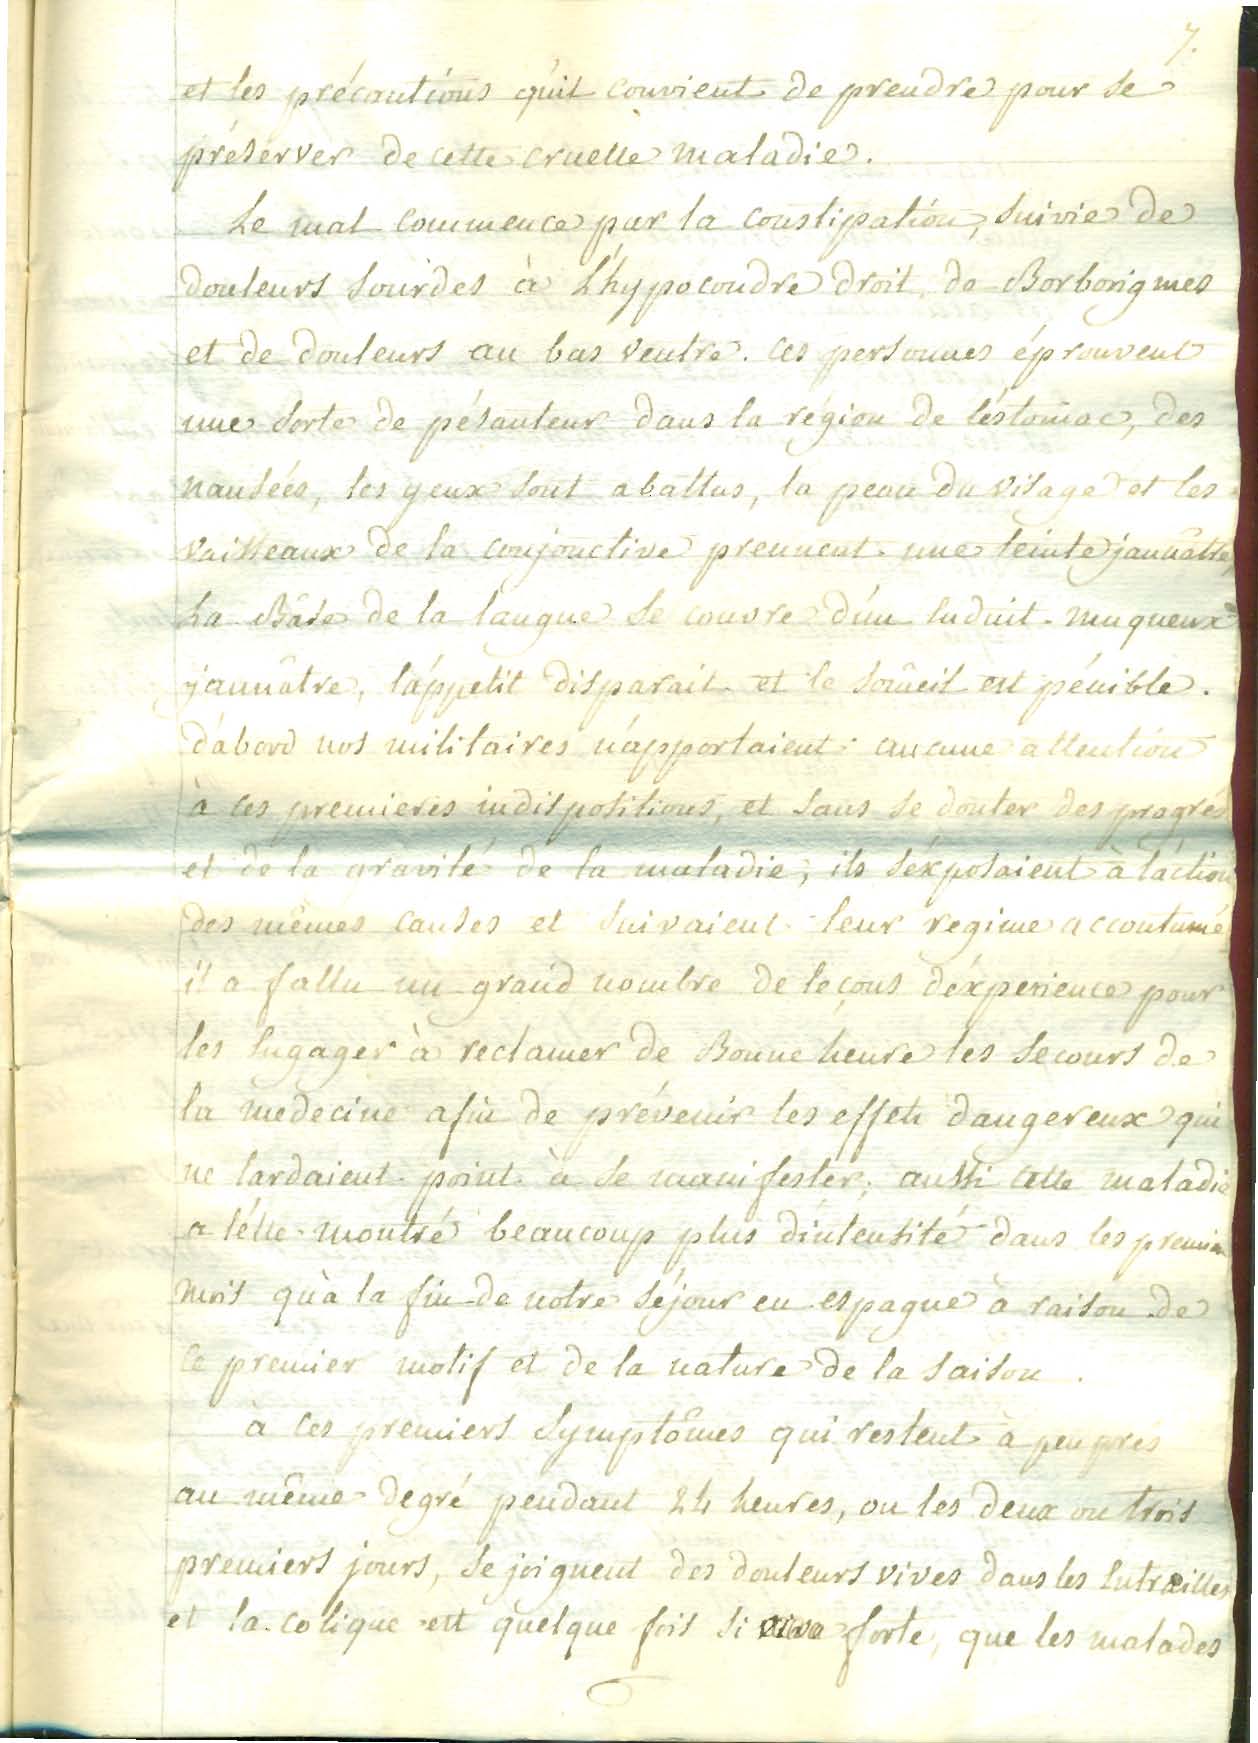 7.
et les précautions qu'il convient de prendre pour se
préserver de cette cruelle maladie.
Le mal commence par la constipation, suivie de
douleurs sourdes à L'hypocondre droit, de Borborigmes
et de douleurs au bas ventre. ces personnes éprouvent
une sorte de pésanteur dans la région de l'éstomac, des
nausées, les yeux sont abattus, la peau du visage et les
vaisseaux de la conjonctive prennent une teinte jaunâtre,
La Bâse de la langue se couvre d'un Enduit muqueux
jaunâtre, l'áppetit disparait et le someil est pénible.
d'abord nos militaires n'apportaient aucune attention
à ces premieres indispositions, et sans se douter des progrés
et de la gravité de la maladie, ils s'éxposaient à l'áction
des mêmes causes et suivaient leur regime accoutumé
il a fallu un grand nombre de leçons d'éxperience pour
les Engager à reclamer de Bonne heure les secours de
la medecine afin de prévenir les effets dangereux qui
ne tardaient point à se manifester; aussi cette maladie
a t'élle montré beaucoup plus d'intensité dans les premiers
mois qu'à la fin de notre séjour en espagne à raison de
ce premier motif et de la nature de la saison.
à ces premiers symptômes qui restent à peu prés
au même degré pendant 24 heures, ou les deux ou trois
premiers jours, se joignent des douleurs vives dans les Entrailles
et la colique est quelque fois si forte, que les malades